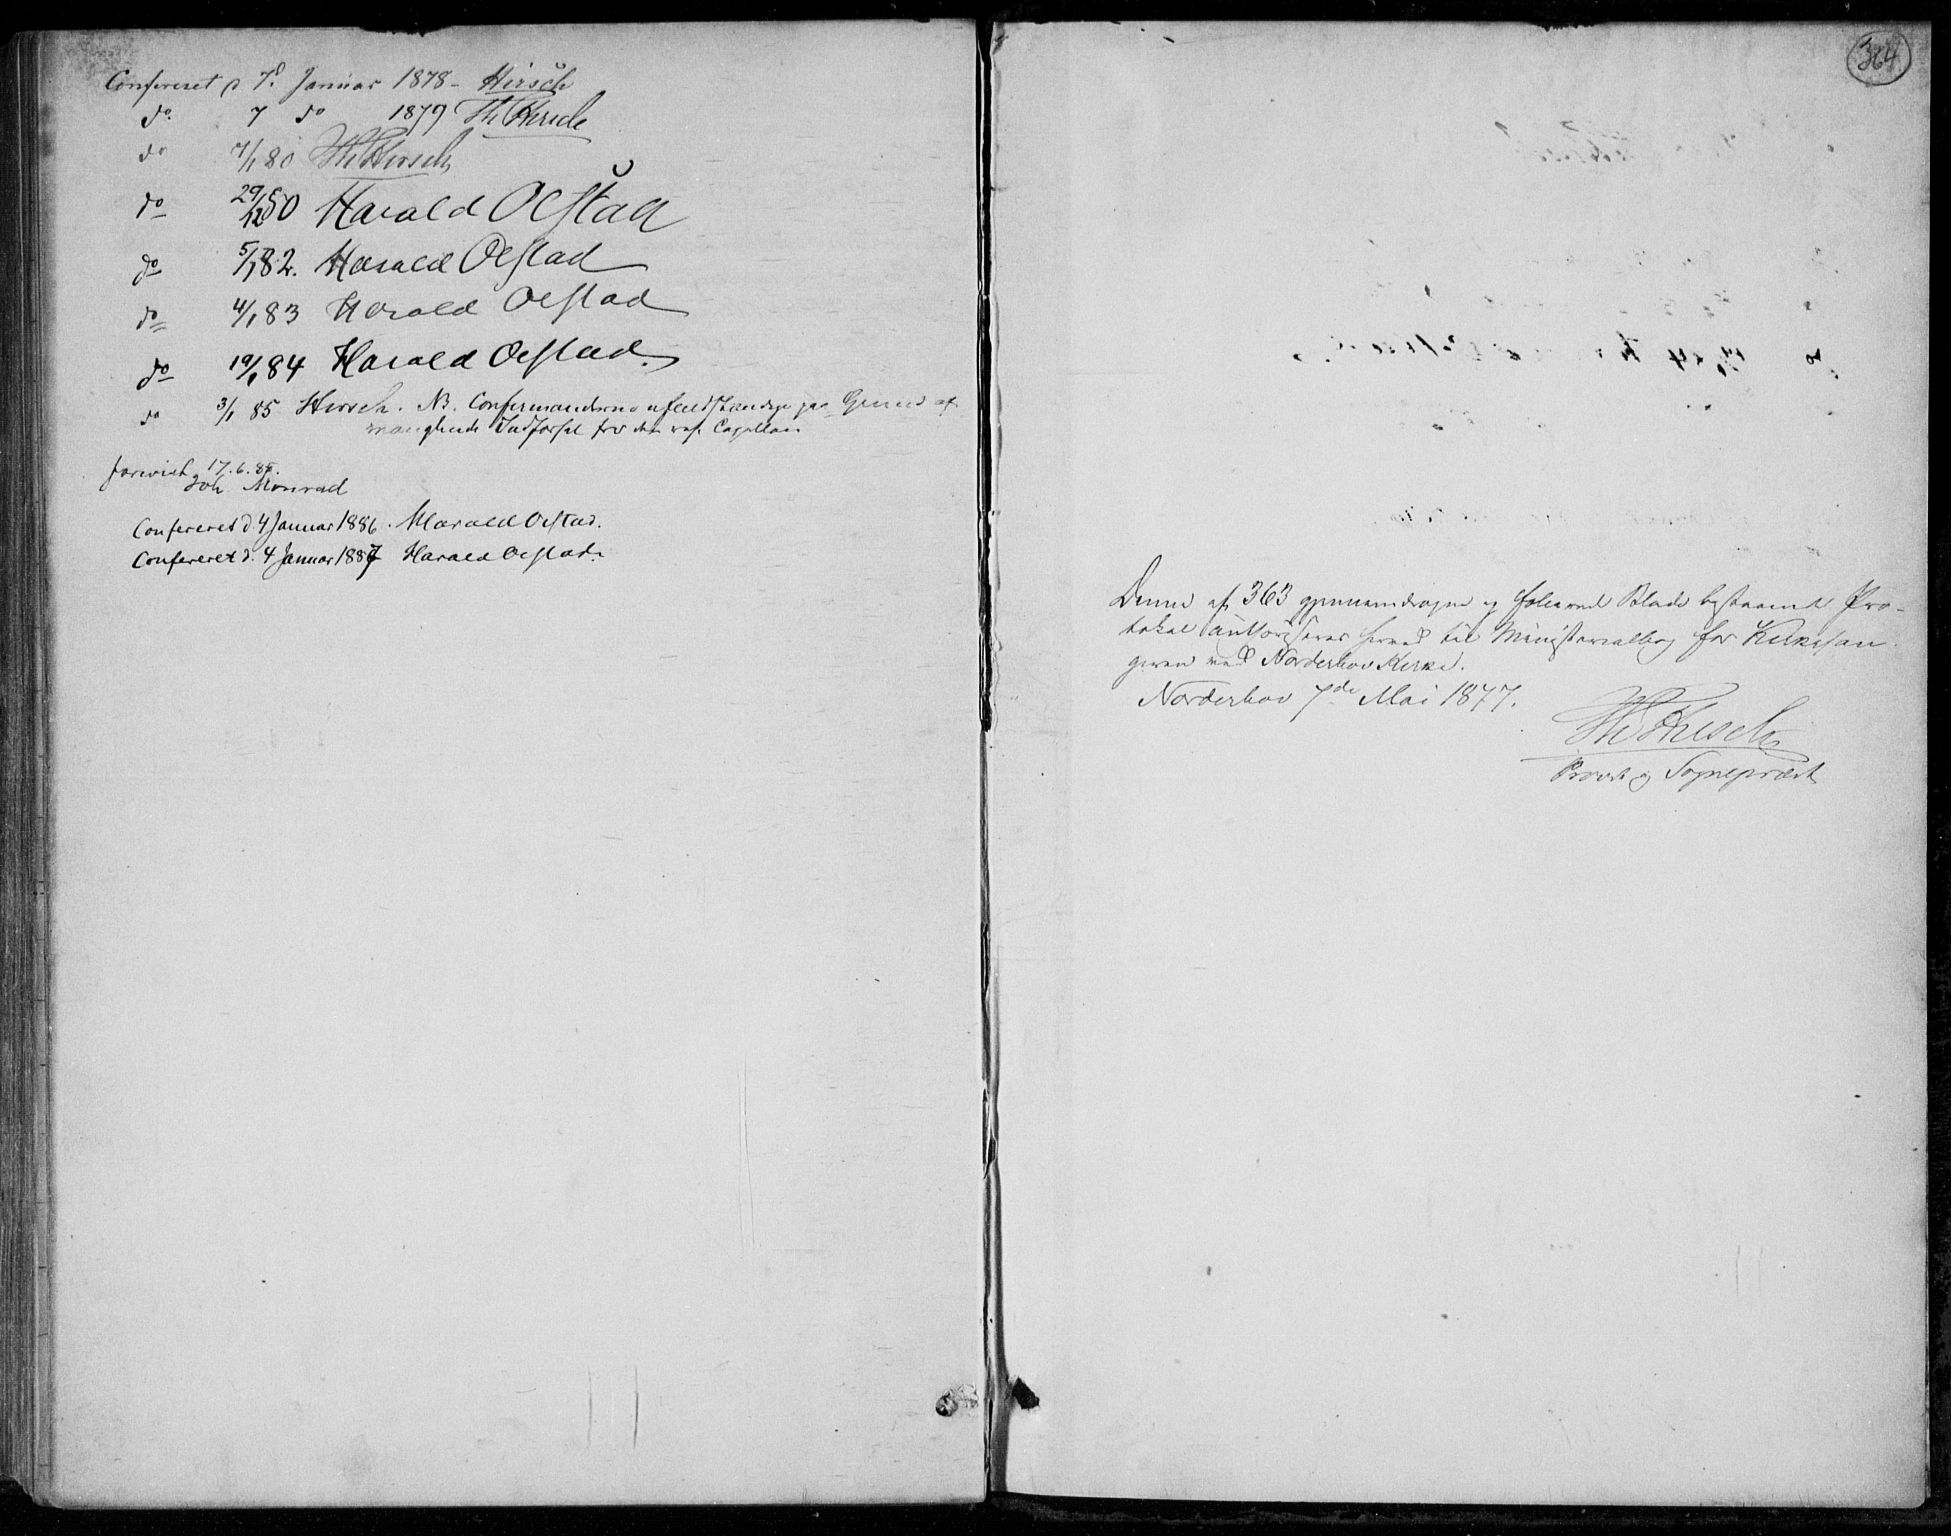 Confereret d 7d Januar 1878 - Hirsch
do 7 do 1879 Th Hirsch
do 7/1 80 Th Hirsch
do 29/12 80 Harald Oestad
do 5/1 82. Harald Oestad
do 4/1 83 Harald Oestad
do 19/1 84 Harald Oestad.
do 3/1 85 Hirsch. NB. Confirmanderne ufuldstændige paa Grund af
manglende Indførsel fra den res. Capellan
forevist 17.6.85.
Joh. Monrad
Confereret d 4 Januar 1886. Harald Oestad.
Confereret d. 4 Januar 1887 Harald Oestad.
364
Denne af 363 gjennemdragne og folierede Blade bestaaende Pro-
tokol authoriseres herved til Ministerialbog for Kirkesan-
geren ved Norderhov Kirke.
Norderhov 7de Mai 1877.
Th Hirsch
Provst og Sognepræst